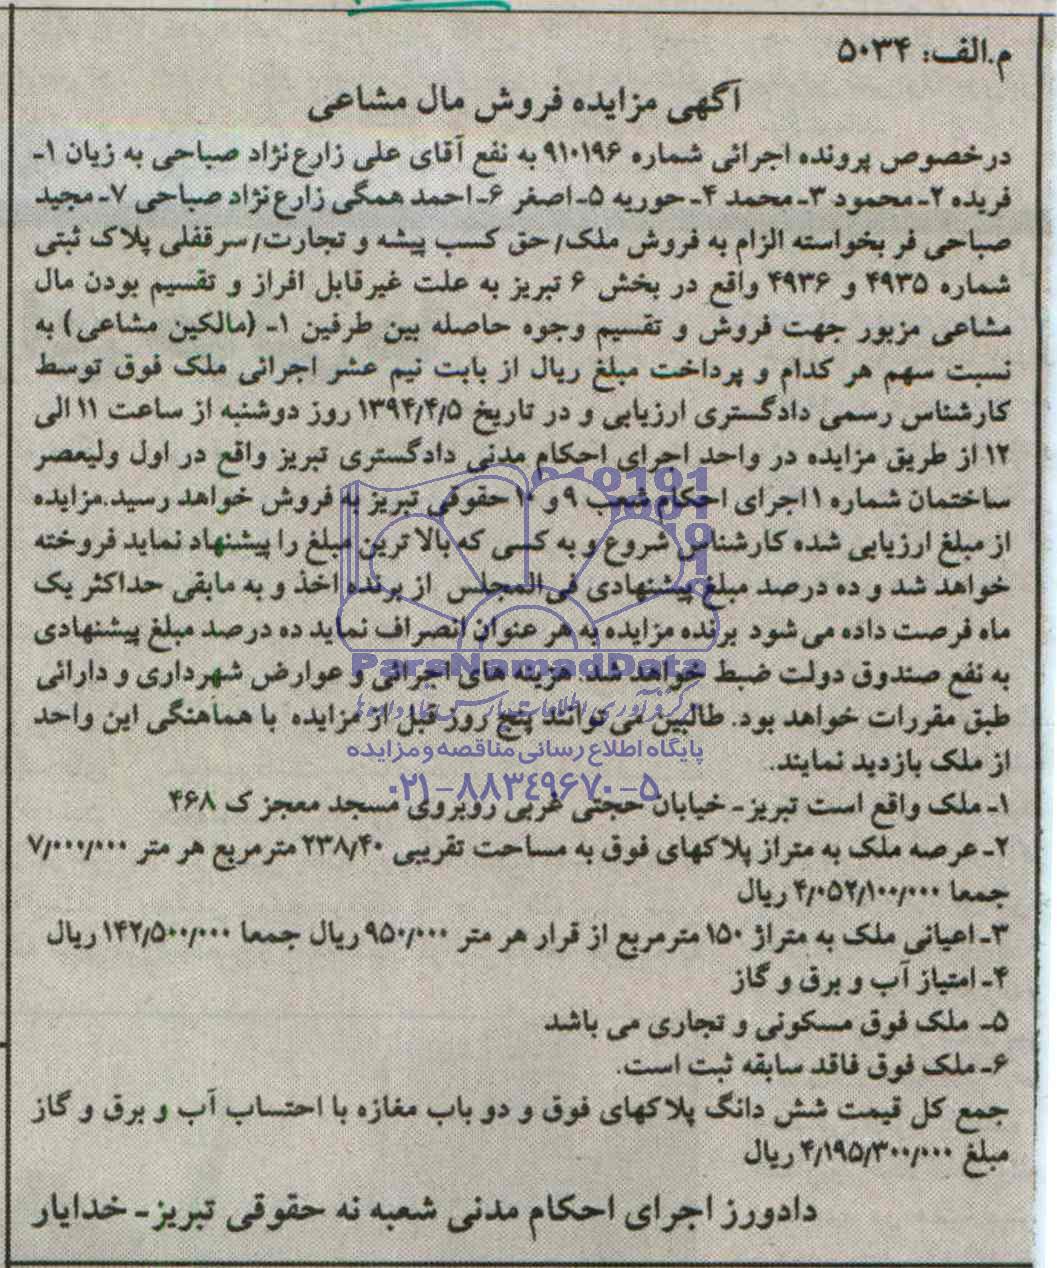 م.الف: ۵۰۳۴
آگهی مزایده فروش مال مشاعی
درخصوص پرونده اجرائی شماره ۹۱۰۱۹۶ به نفع آقای علی زارع‌نژاد صباحی به زیان ۱-
فریده ۲- محمود ۳- محمد ۴- حوریه ۵- اصغر ۶- احمد همگی زارع‌نژاد صباحی ۷- مجید
صباحی فر بخواسته الزام به فروش ملک/ حق کسب پیشه و تجارت/ سرقفلی پلاک ثبتی
شماره ۴۹۳۵ و ۴۹۳۶ واقع در بخش ۶ تبریز به علت غیرقابل افراز و تقسیم بودن مال
مشاعی مزبور جهت فروش و تقسیم وجوه حاصله بین طرفین ۱- (مالکین مشاعی) به
نسبت سهم هر کدام و پرداخت مبلغ ریال از بابت نیم عشر اجرائی ملک فوق توسط
کارشناس رسمی دادگستری ارزیابی و در تاریخ ۱۳۹۴/۴/۵ روز دوشنبه از ساعت ۱۱ الی
۱۲ از طریق مزایده در واحد اجرای احکام مدنی دادگستری تبریز واقع در اول ولیعصر
ساختمان شماره ۱ اجرای احکام شعب ۹ و ۱۰ حقوقی تبریز به فروش خواهد رسید.مزایده
از مبلغ ارزیابی شده کارشناس شروع و به کسی که بالاترین مبلغ را پیشنهاد نماید فروخته
خواهد شد و ده درصد مبلغ پیشنهادی فی‌المجلس از برنده اخذ و به مابقی حداکثر یک
ماه فرصت داده می شود برنده مزایده به هر عنوان انصراف نماید ده درصد مبلغ پیشنهادی
ParsNamadData
به نفع صندوق دولت ضبط خواهد شد. هزینه های اجرائی و عوارض شهرداری و دارائی
طبق مقررات خواهد بود. طالبین می توانند پنج روز قبل از مزایده با هماهنگی این واحد
پایگاه اطلاع رسانی مناقصه و مزایده
از ملک بازدید نمایند.
۰۲۱-۸۸۳۴۹۶۷۰-۵
۱- ملک واقع است تبریز- خیابان حجتی غربی روبروی مسجد معجز ک ۴۶۸
۲- عرصه ملک به متراز پلاکهای فوق به مساحت تقریبی ۲۳۸/۴۰ مترمربع هر متر ۷/۰۰۰/۰۰۰
جمعا ۴/۰۵۲/۱۰۰/۰۰۰ ریال
۳- اعیانی ملک به متراژ ۱۵۰ مترمربع از قرار هر متر ۹۵۰/۰۰۰ ریال جمعا ۱۴۲/۵۰۰/۰۰۰ ریال
۴- امتیاز آب و برق و گاز
۵- ملک فوق مسکونی و تجاری می باشد
۶- ملک فوق فاقد سابقه ثبت است.
جمع کل قیمت شش دانگ پلاکهای فوق و دو باب مغازه با احتساب آب و برق و گاز
مبلغ ۴/۱۹۵/۳۰۰/۰۰۰ ریال
دادورز اجرای احکام مدنی شعبه نه حقوقی تبریز- خدایار